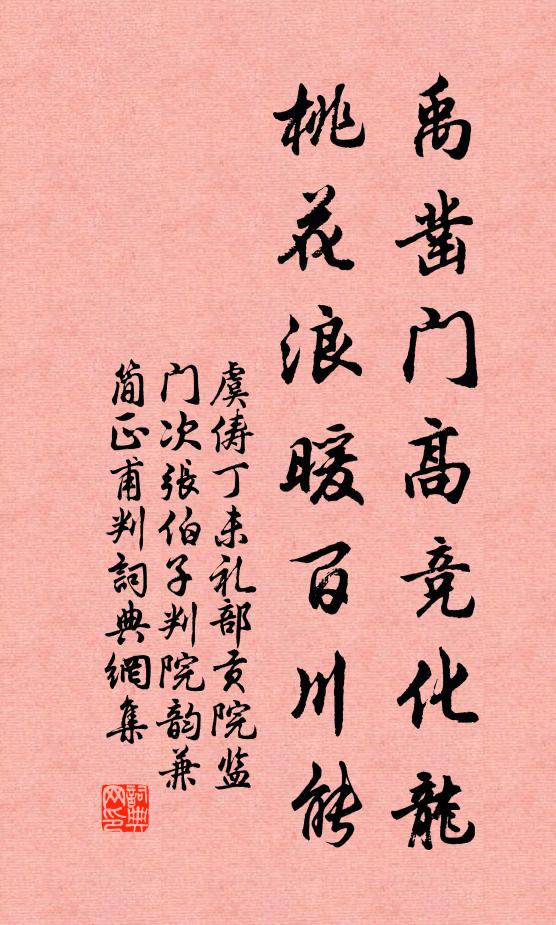 禹凿门高竞化龍
桃花浪暖百川能
虞俦丁未礼部贡院监
门次張伯子判院韵兼
简正甫判詞典網集
詞典
网印